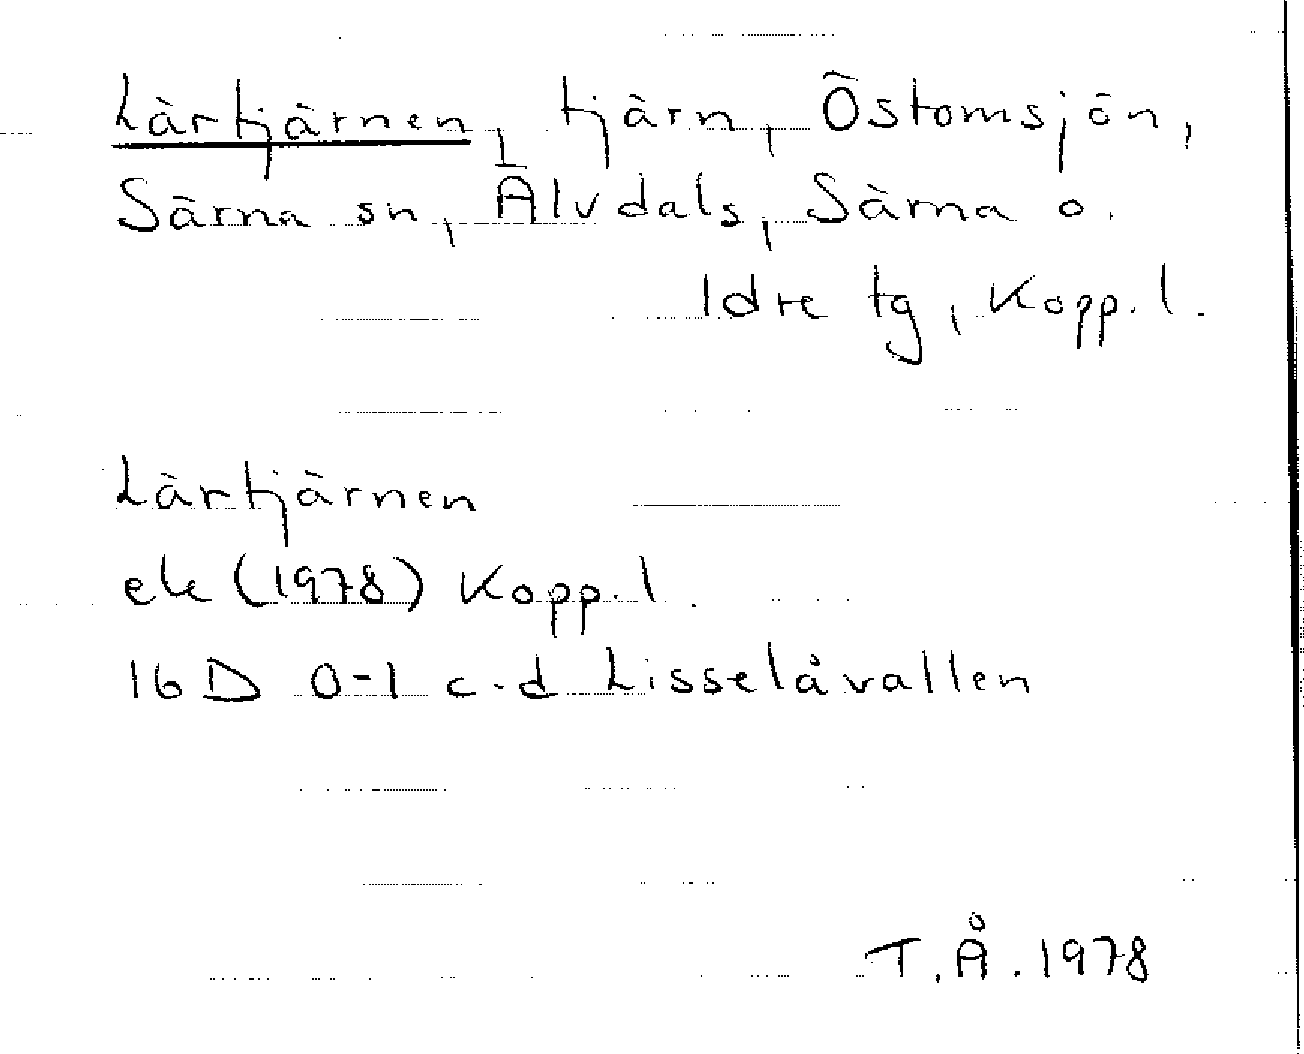 Lärtjärnen, tjärn, Östomsjön,
Särna sn, Älvdals, Särna o.
Idre tg, Kopp. l.
Lärtjärnen
ek (1978) Kopp. l.
16 D 0-1 c.d Lisselåvallen
T.Å. 1978